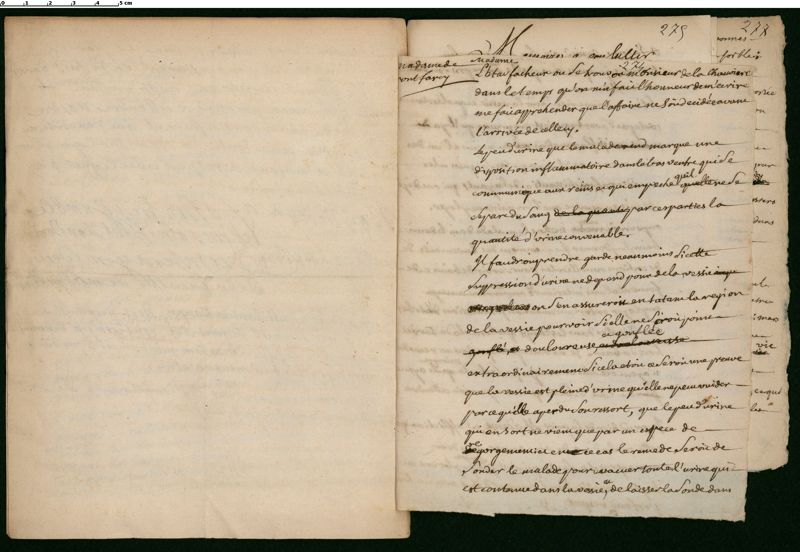 275
277
madame de
pont farcy
Madame
274
L'Etat facheur ou se trouvoit monsieur de la chauviere
dans le temps qu'on me fait l'honneur de m'ecrire
me fait apprehender que l'affaire ne soit decidée avant
l'arrivée de celle cy.
Le peu d'urine que le malade rend marque une
disposition inflammatoire dans le bas ventre qui se
communique aux reins et qui empeche qu'il ne se
separe du sang de la quanti par ces parties la
quantité d'urine convenable.
Il faudroit prendre garde neaumoins si cette
suppression d'urine ne depend point de la vessie
on s'en assureroit en tatant la region
de la vessie pour voir si elle ne seroit point
et gonflée
gonflé, et douloureuse
extraordinairement si cela etoit ce seroit une preuve
que la vessie est pleine d'urine qu'elle ne peut vuider
parce qu'elle a perdu son ressort, que le peu d'urine
qui en sort ne vient que par un espece de
regorgement et en ce cas le remede seroit de
sonder le malade pour evacuer toute l'urine qui
est contenue dans la vessie, et de laisser la sonde dans